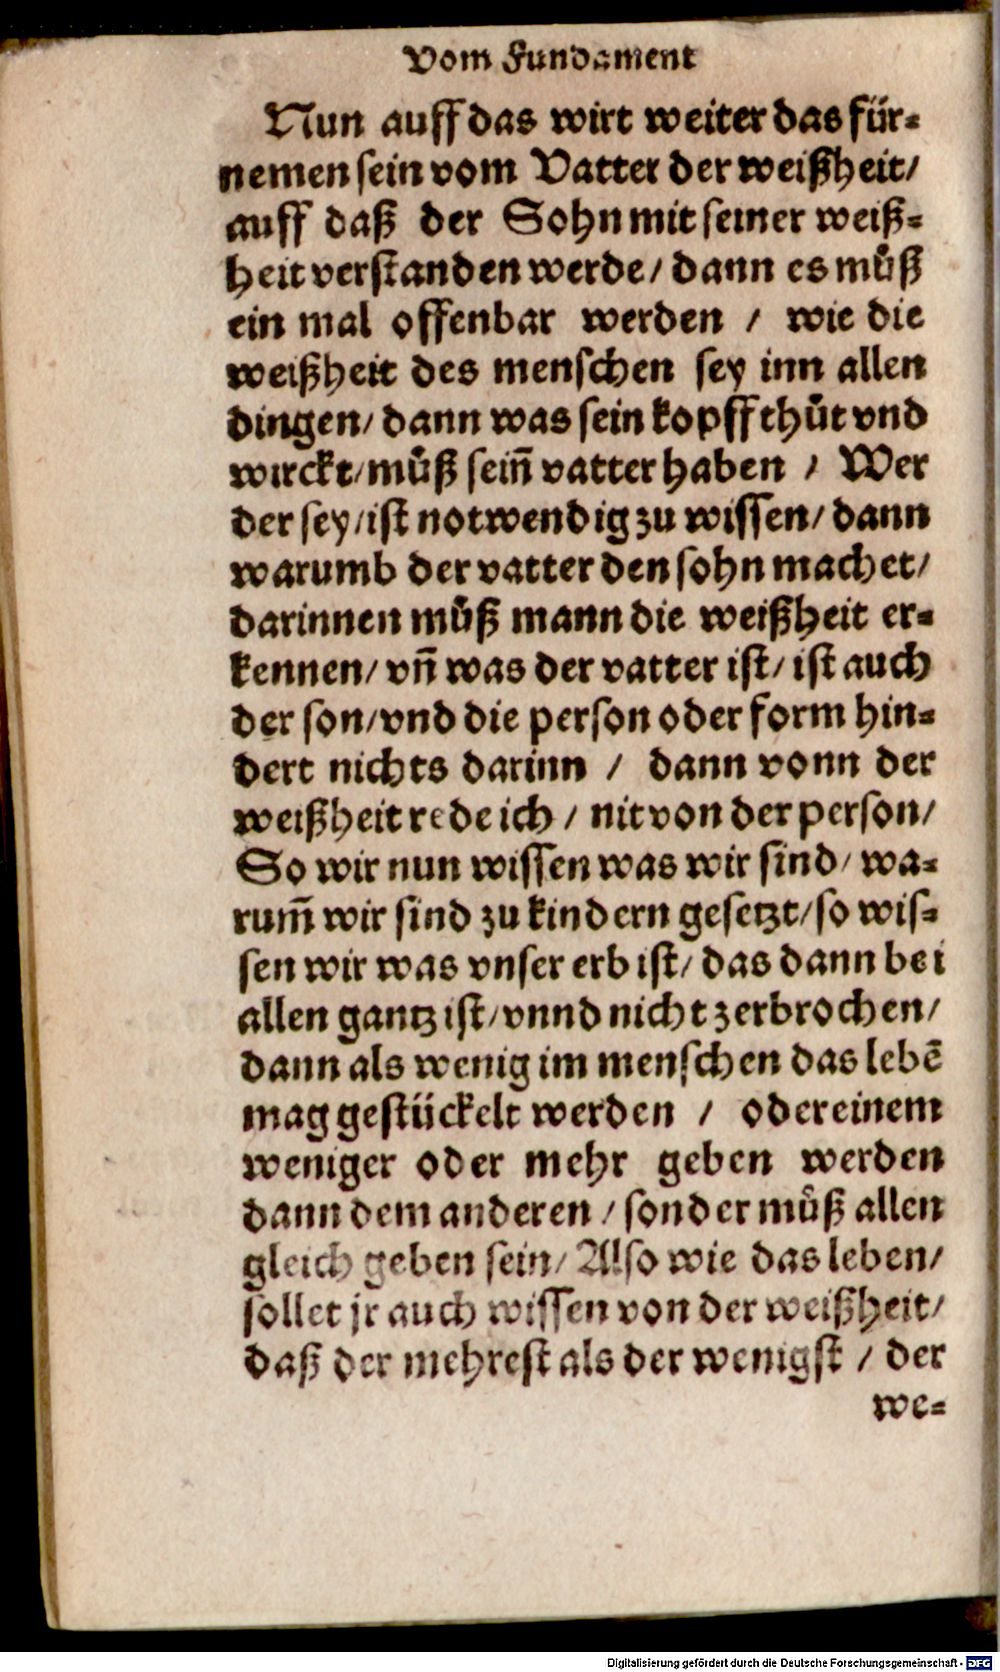 Vom Fundament
Nun auff das wirt weiter das für-
nemen sein vom Vatter der weißheit/
auff daß der Sohn mit seiner weiß-
heit verstanden werde/ dann es můß
ein mal offenbar werden / wie die
weißheit des menschen sey inn allen
dingen/ dann was sein kopff thůt vnd
wirckt/ můß sein̄ vatter haben / Wer
der sey/ ist notwendig zu wissen/ dann
warumb der vatter den sohn machet/
darinnen můß mann die weißheit er-
kennen/ vn̄ was der vatter ist/ ist auch
der son/ vnd die person oder form hin-
dert nichts darinn / dann vonn der
weißheit rede ich / nit von der person/
So wir nun wissen was wir sind/ wa-
rum̄ wir sind zu kindern gesetzt/ so wis-
sen wir was vnser erb ist/ das dann bei
allen gantz ist/ vnnd nicht zerbrochen/
dann als wenig im menschen das lebē
mag gestückelt werden / oder einem
weniger oder mehr geben werden
dann dem anderen / sonder můß allen
gleich geben sein/ Also wie das leben/
sollet jr auch wissen von der weißheit/
daß der mehrest als der wenigst / der
we-
Digitalisierung gefördert durch die Deutsche Forschungsgemeinschaft - DFG